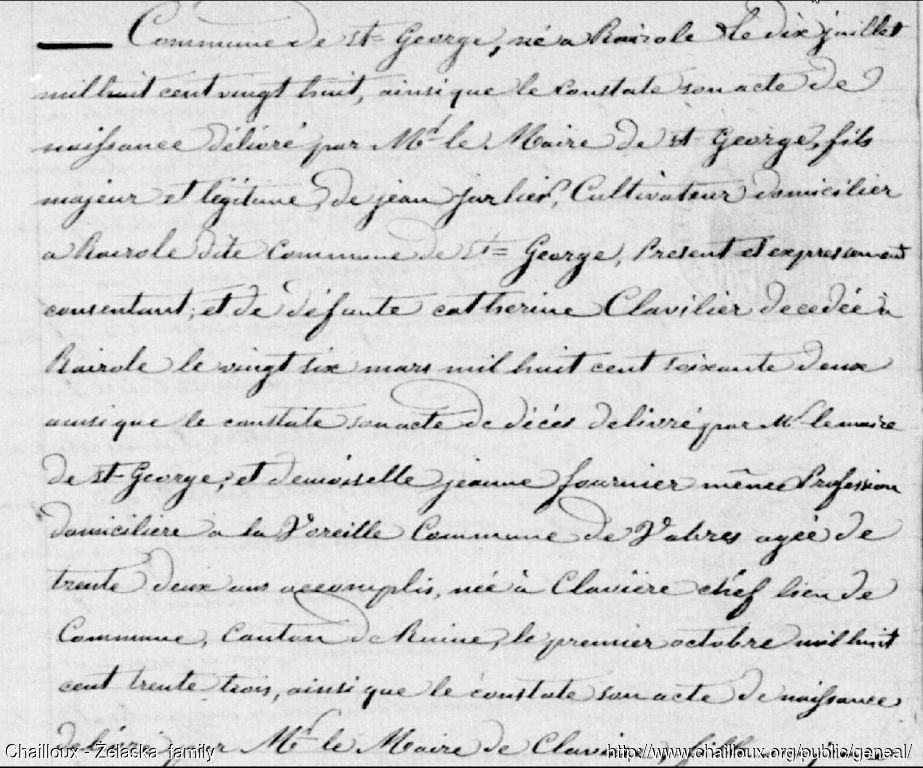 Commune de St George, né a Rairole le dix juillet
mil huit cent vingt huit, ainsi que le constate son acte de
naissance délivré par Mr le Maire de St George, fils
majeur et légitime, de jean Jarlier, Cultivateur domicilier
a Rairole dite Commune de St George, Présent et expressement
consentant, et de défunte catherine Clavilier decedée à
Rairole le vingt six mars mil huit cent soixante deux
ainsi que le constate son acte de décès delivré par Mr le maire
de St George, et demoiselle jeanne fournier même Profession
domiciliere a la Voreille Commune de Vabres agée de
trente deux ans accomplis, née à Claviere chef lieu de
Commune, Canton de Ruine, le premier octobre mil huit
cent trente trois, ainsi que le constate son acte de naissance
délivré par Mr le Maire de
Chailloux - Zelaska family
http://www.chailloux.org/public/geneal/